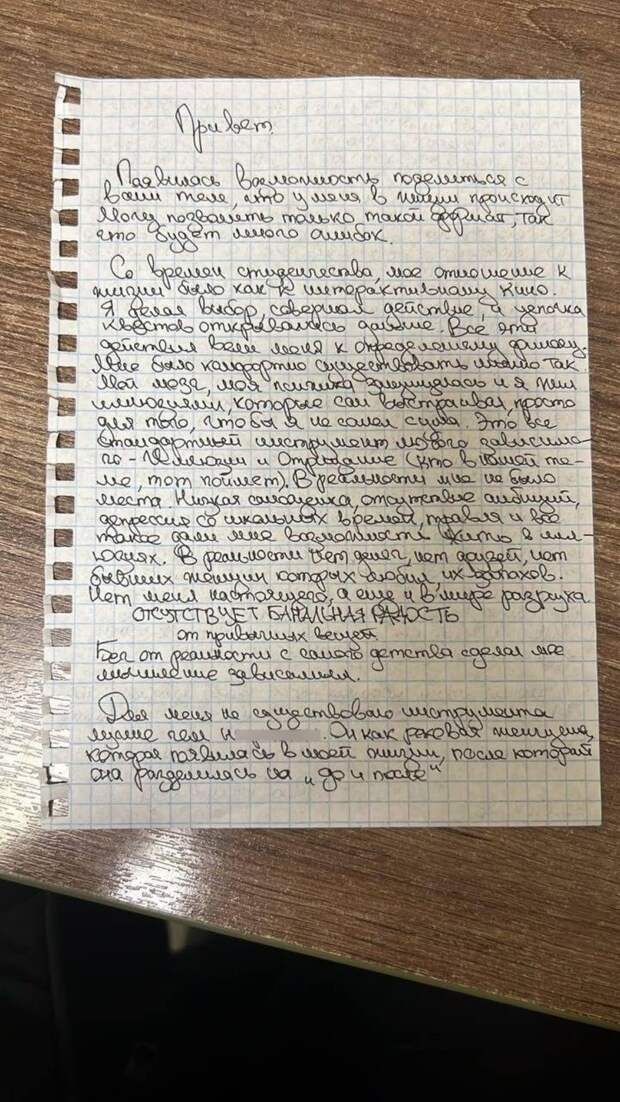 Привет.
Появилась возможность поделиться с
вами тем, что у меня в жизни происходит
Могу позволить только такой формат, так
что будет много ошибок.
Со времен студенчества, мое отношение к
жизни было как к интерактивному кино.
Я делал выбор, совершал действие, и цепочка
квестов открывалась дальше. Все эти
действия вели меня к определеному финалу.
Мне было комфортно существовать именно так.
Мой мозг, моя психика защищалась и я жил
иллюзиями, которые сам выстраивал, просто
для того, чтобы я не сошел с ума. Это все
стандартный инструмент любого зависимо-
го - Иллюзии и Отрицание (кто в моей те-
ме, тот поймет). В реальности мне не было
места. Низкая самооценка, отсутствие амбиций,
депрессия со школьных времен, травля и все
такое дали мне возможность жить в ил-
люзиях. В реальности нет денег, нет друзей, нет
бывших женщин которых любил, их запахов.
Нет меня настоящего, а еще и в мире разруха.
ОТСУТСТВУЕТ БАНАЛЬНАЯ РАДОСТЬ
от привычных вещей
Бег от реальности с самого детства сделал мое
мышление зависимым.
Для меня не существовало инструмента
лучше чем н . Он как роковая женщина,
которая появилась в моей жизни, после которой
она разделилась на „до и после"